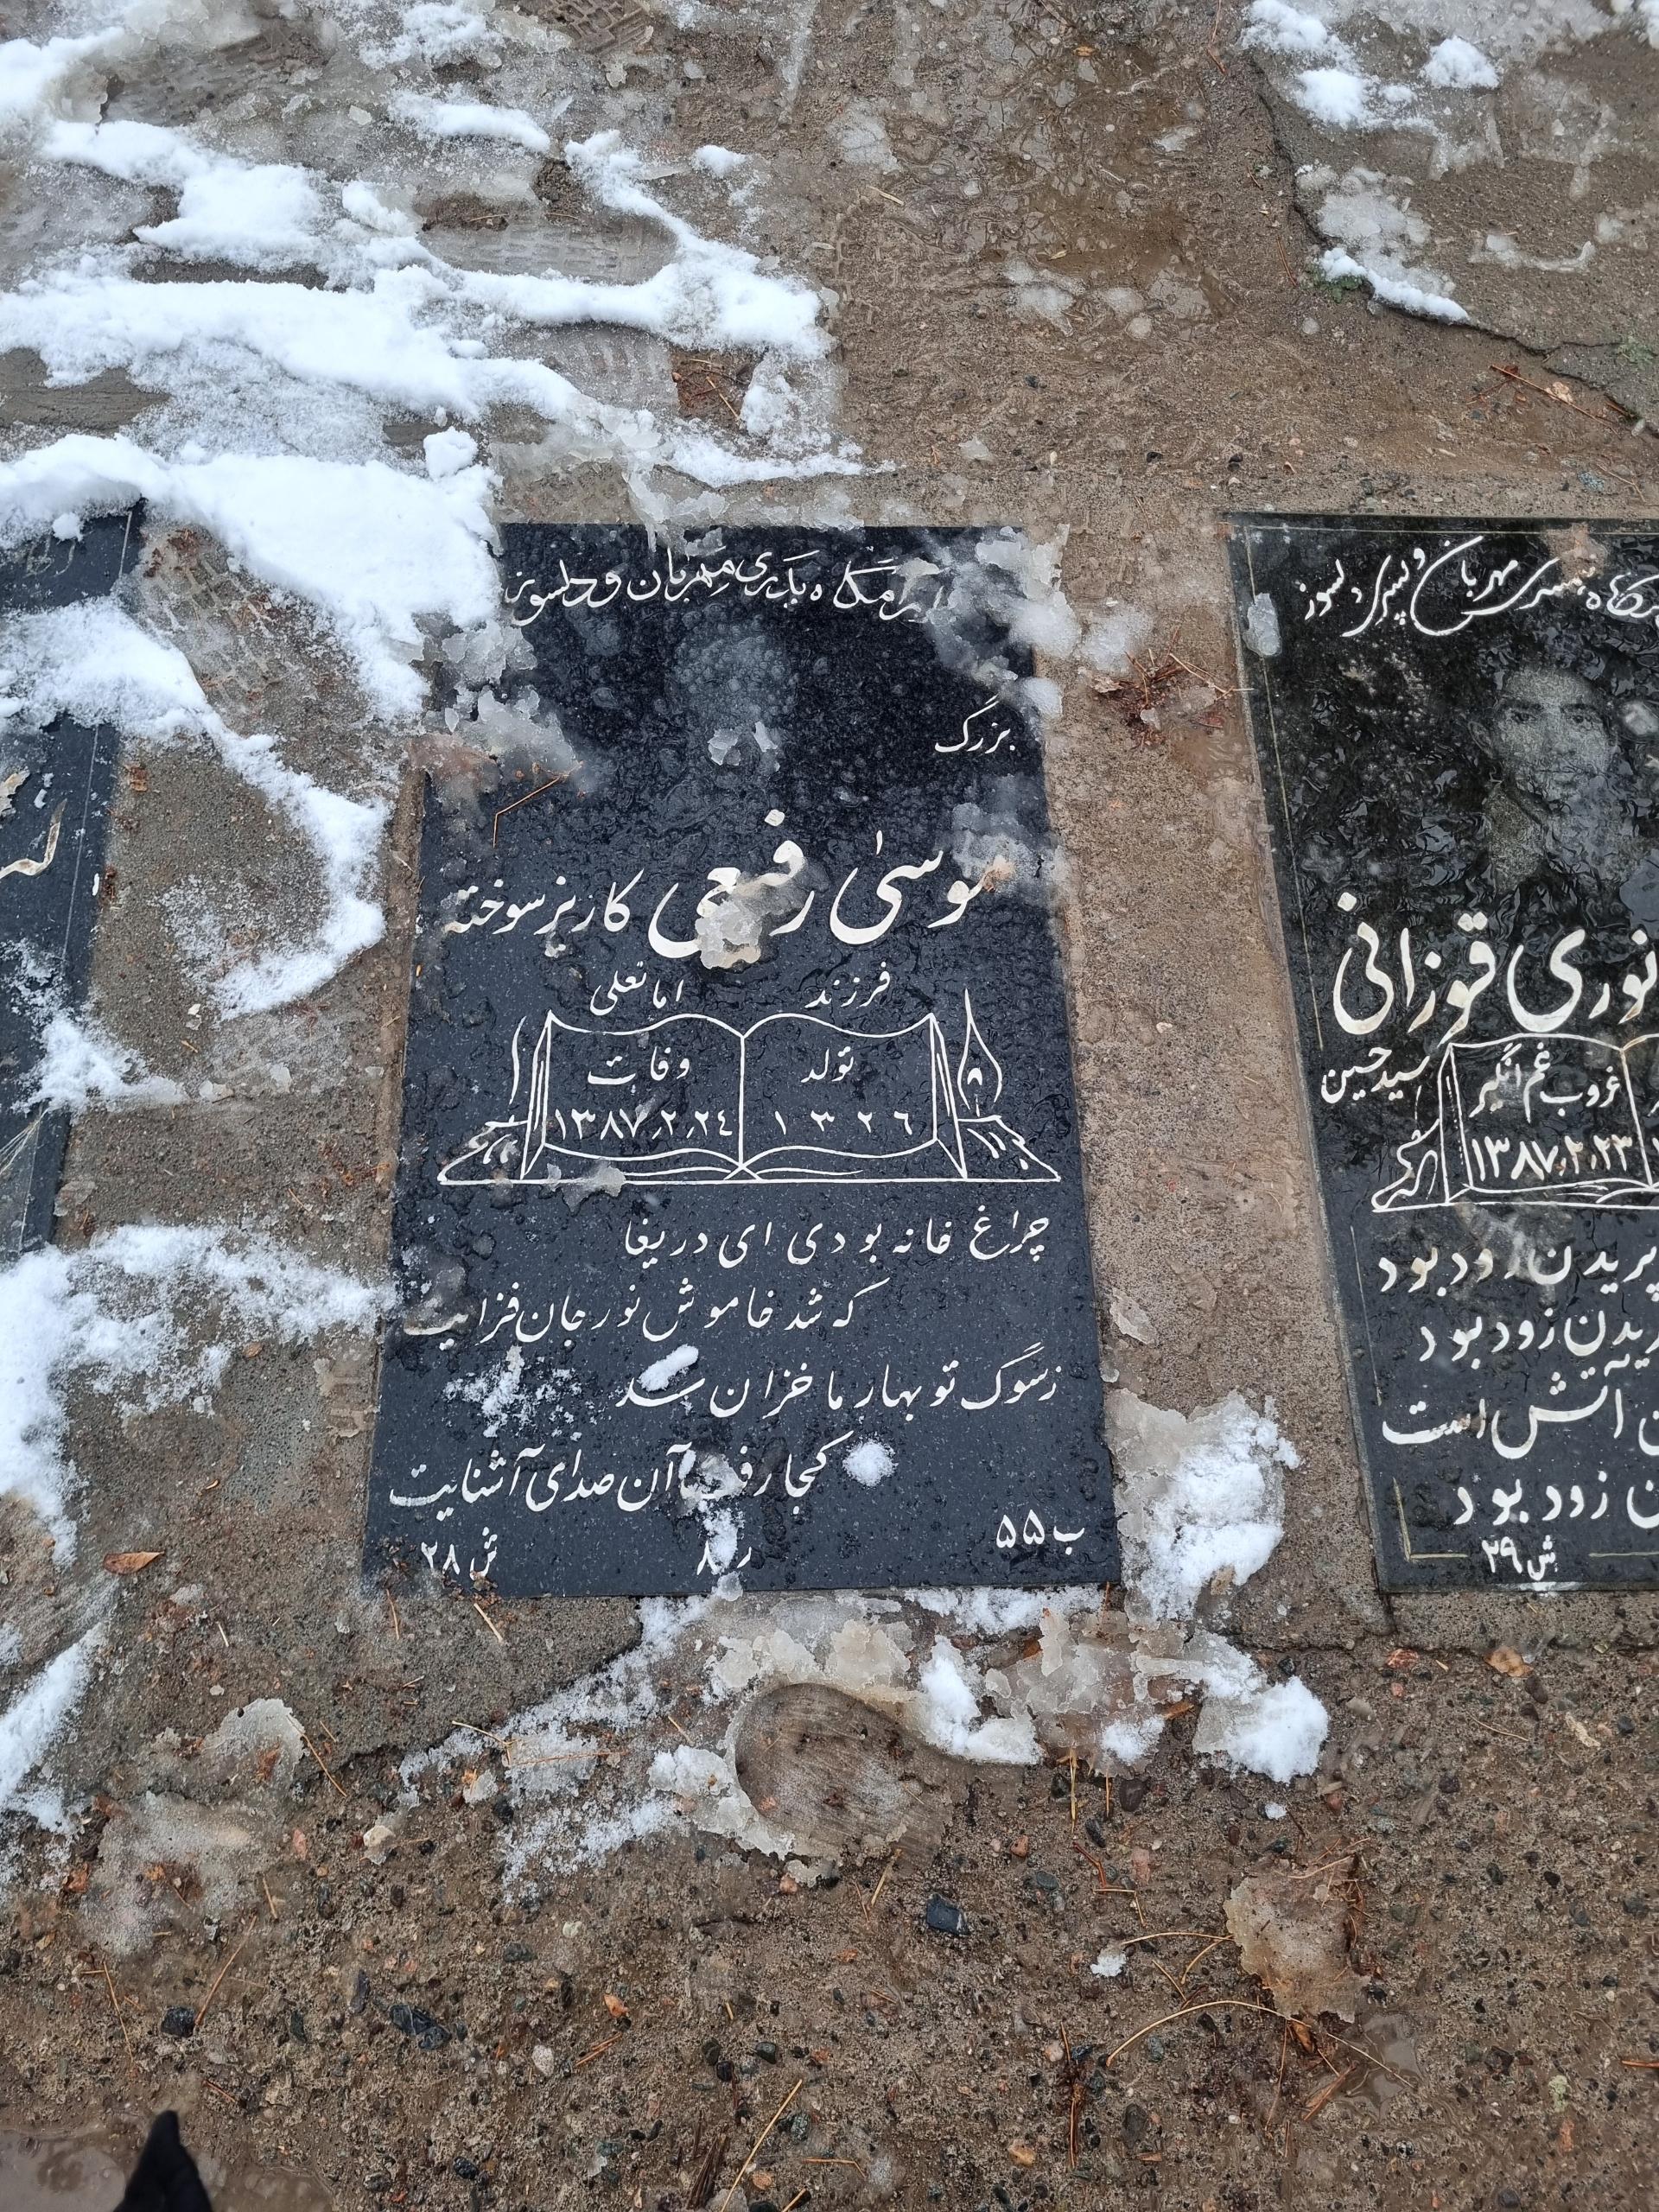 آرامگاه پدری مهربان و دلسوز
بزرگ
موسی رفیعی کاریزسوخته
فرزند امانعلی
تولد وفات
۱۳۲۶ ۱۳۸۷,۲,۲۴
چراغ خانه بودی ای دریغا
که شد خاموش نور جان فزایت
زسوگ تو بهار ما خزان شد
کجا رفت آن صدای آشنایت
ب ۵۵ ر ۸ ش ۲۸
همسری مهربان و پسری دلسوز
نوری قوزانی
سیدحسین
غروب غم انگیز
۱۳۸۷,۲,۲۳
پریدن زود بود
زود بود
آتش است
زود بود
ش ۲۹